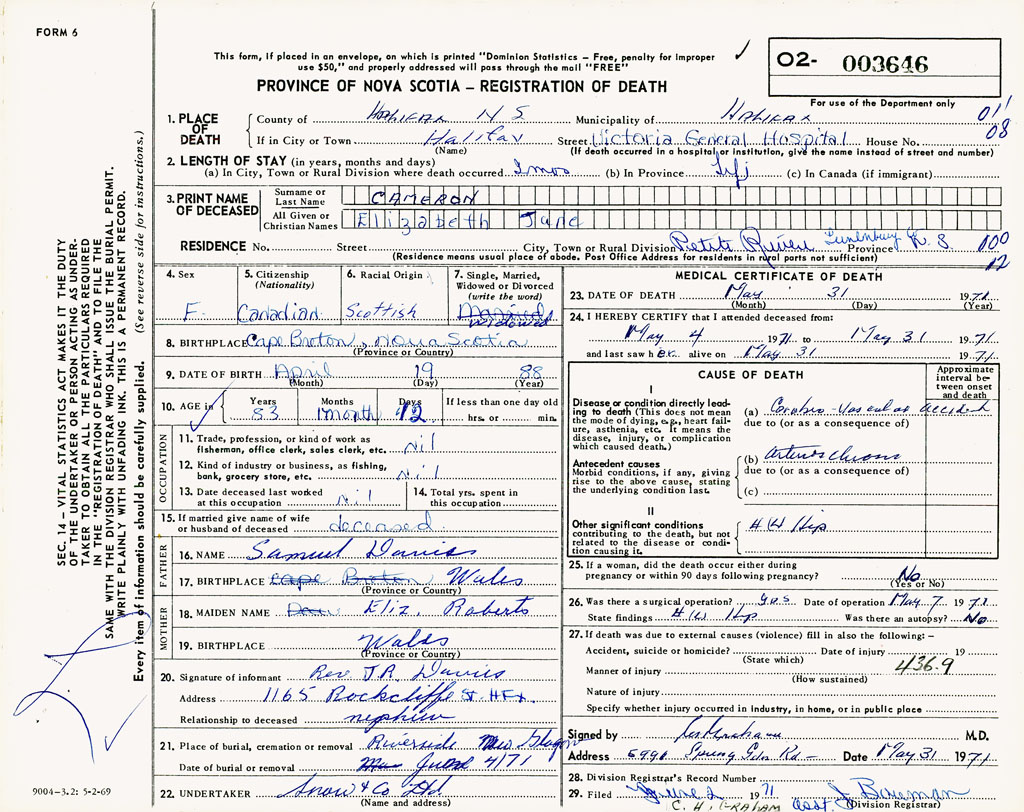 FORM 6
This form, if placed in an envelope, on which is printed "Dominion Statistics – Free, penalty for improper
use $50," and properly addressed will pass through the mail "FREE"
PROVINCE OF NOVA SCOTIA – REGISTRATION OF DEATH
O2- 003646
For use of the Department only
01'
08
1. PLACE OF DEATH
County of Halifax N S Municipality of Halifax
If in City or Town Halifax Street Victoria General Hospital House No.
(Name) (If death occurred in a hospital or institution, give the name instead of street and number)
2. LENGTH OF STAY (in years, months and days)
(a) In City, Town or Rural Division where death occurred 1mos (b) In Province (c) In Canada (if immigrant)
3. PRINT NAME OF DECEASED
Surname or Last Name CAMERON
All Given or Christian Names Elizabeth Jane
RESIDENCE No. Street City, Town or Rural Division Petite Riviere Lunenburg Co. N. S Province 100
(Residence means usual place of abode. Post Office Address for residents in rural parts not sufficient) 12
4. Sex F.
5. Citizenship (Nationality) Canadian
6. Racial Origin Scottish
7. Single, Married, Widowed or Divorced (write the word) Married widowed
8. BIRTHPLACE Cape Breton, Nova Scotia
(Province or Country)
9. DATE OF BIRTH April 19 88
(Month) (Day) (Year)
10. AGE in Years 83 Months 1 month Days 12 If less than one day old
hrs. or min.
OCCUPATION
11. Trade, profession, or kind of work as
fisherman, office clerk, sales clerk, etc. Nil
12. Kind of industry or business, as fishing,
bank, grocery store, etc. Nil
13. Date deceased last worked
at this occupation Nil
14. Total yrs. spent in
this occupation
15. If married give name of wife
or husband of deceased deceased
FATHER
16. NAME Samuel Davies
17. BIRTHPLACE Cape Breton Wales
(Province or Country)
MOTHER
18. MAIDEN NAME Eliz. Roberts
19. BIRTHPLACE Wales
(Province or Country)
20. Signature of informant Rev J.R. Davies
Address 1165 Rockcliffe St. HFx.
Relationship to deceased nephew
21. Place of burial, cremation or removal Riverside New Glasgow
Date of burial or removal June 4/71
22. UNDERTAKER Snow & Co Ltd
(Name and address)
MEDICAL CERTIFICATE OF DEATH
23. DATE OF DEATH May 31 1971
(Month) (Day) (Year)
24. I HEREBY CERTIFY that I attended deceased from:
May 4 1971 to May 31 1971
and last saw her alive on May 31 1971
CAUSE OF DEATH
Approximate interval between onset and death
I
Disease or condition directly leading to death (This does not mean the mode of dying, e.g., heart failure, asthenia, etc. It means the disease, injury, or complication which caused death.)
(a) Cerebro-Vascular accident
due to (or as a consequence of)
Antecedent causes
Morbid conditions, if any, giving rise to the above cause, stating the underlying condition last.
(b)
due to (or as a consequence of)
(c)
II
Other significant conditions
contributing to the death, but not related to the disease or condition causing it. Hip
25. If a woman, did the death occur either during
pregnancy or within 90 days following pregnancy? No
(Yes or No)
26. Was there a surgical operation? yes Date of operation May 7 1971
State findings Hip Was there an autopsy? No
27. If death was due to external causes (violence) fill in also the following: –
Accident, suicide or homicide? Date of injury 19
(State which) 436.9
Manner of injury
(How sustained)
Nature of injury
Specify whether injury occurred in industry, in home, or in public place
Signed by M.D.
Address 5991 Spring Gdn Rd – Date May 31 1971
28. Division Registrar's Record Number
29. Filed June 2 1971
C. H. GRAHAM (Division Registrar)
SEC. 14 – VITAL STATISTICS ACT MAKES IT THE DUTY
OF THE UNDERTAKER OR PERSON ACTING AS UNDERTAKER
TO OBTAIN ALL THE PARTICULARS REQUIRED
IN THE "REGISTRATION OF DEATH" AND TO FILE THE
SAME WITH THE DIVISION REGISTRAR WHO SHALL ISSUE THE BURIAL PERMIT.
WRITE PLAINLY WITH UNFADING INK. THIS IS A PERMANENT RECORD.
Every item of information should be carefully supplied. (See reverse side for instructions.)
9004–3.2: 5-2-69